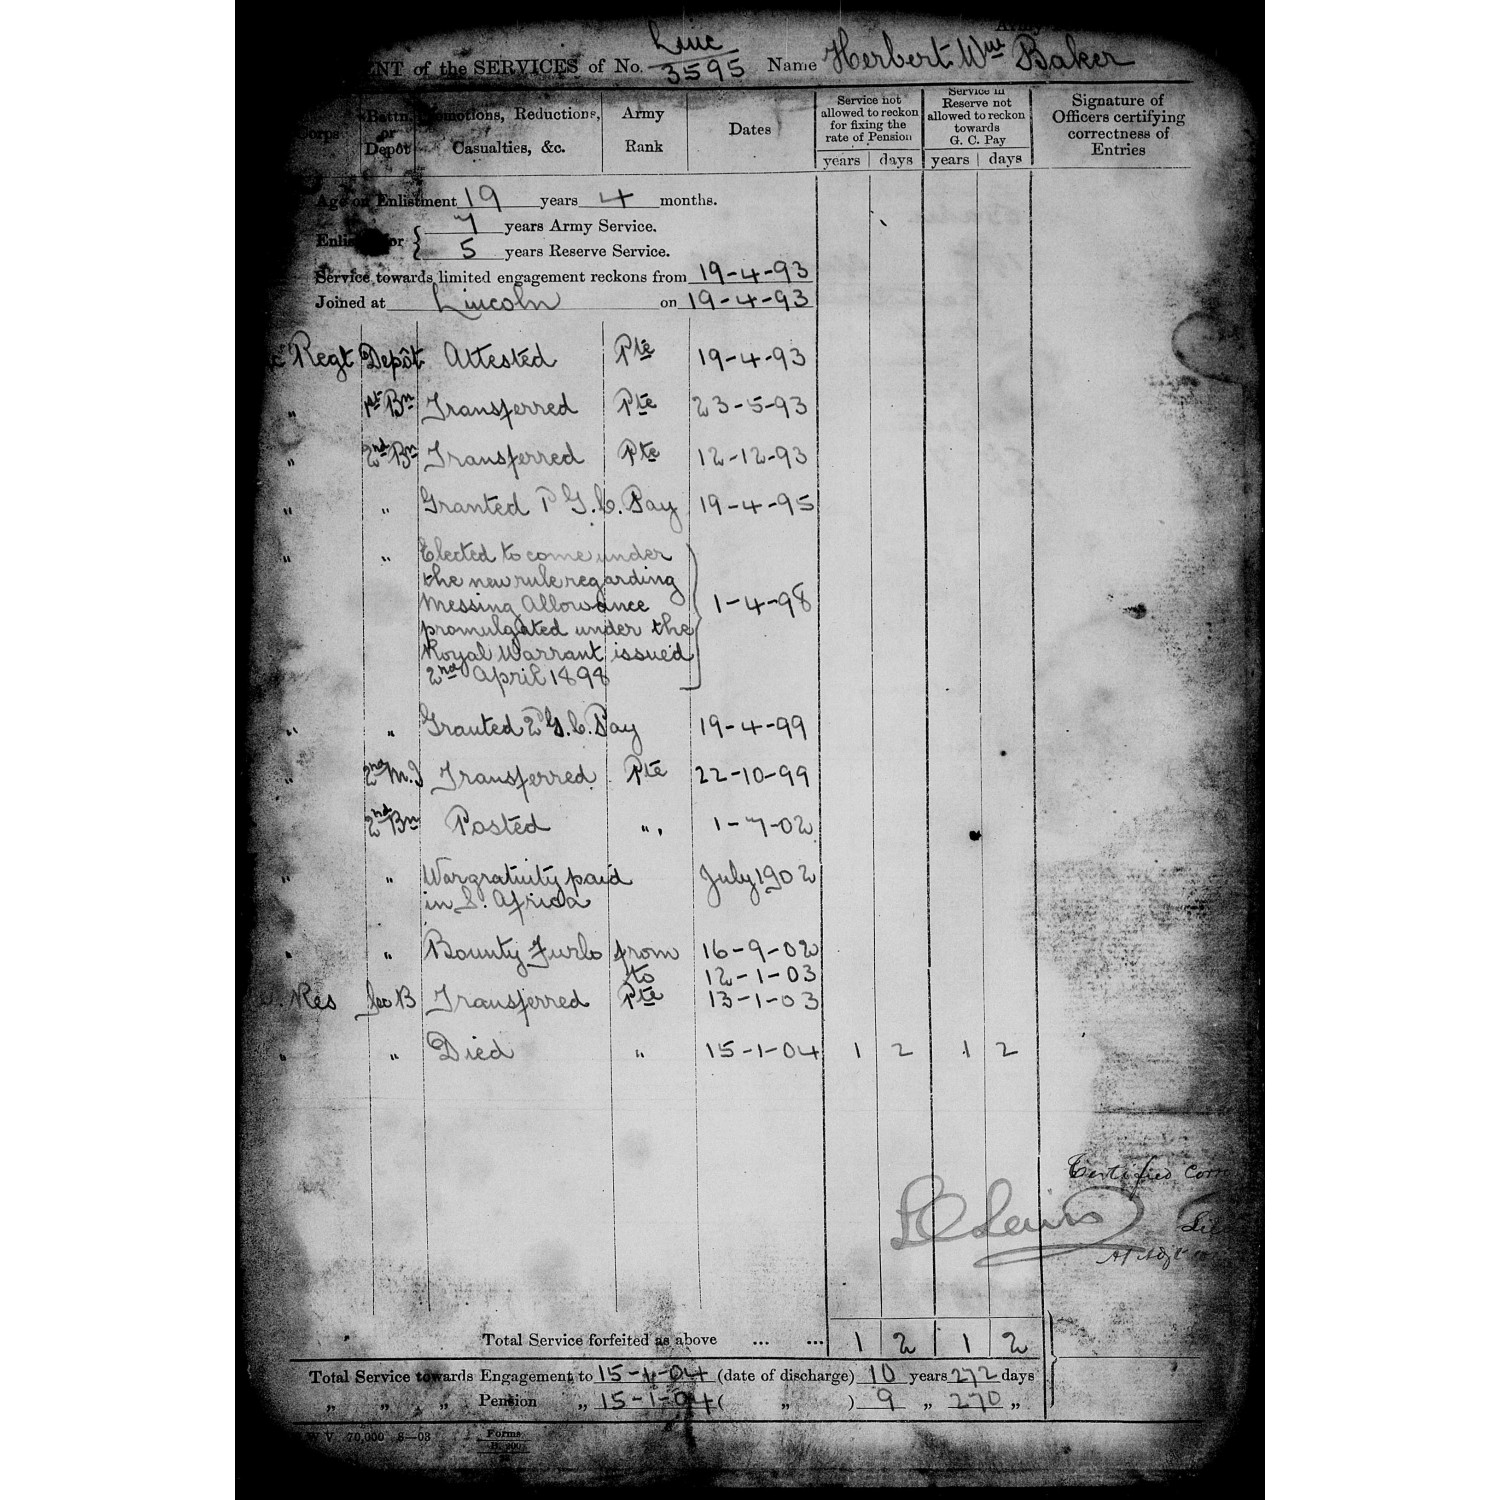 Army
Linc
ENT of the SERVICES of No. 3595 Name Herbert Wm Baker
Corps Battn. or Depôt Promotions, Reductions, Casualties, &c. Army Rank Dates Service not allowed to reckon for fixing the rate of Pension Service in Reserve not allowed to reckon towards G. C. Pay Signature of Officers certifying correctness of Entries
years days years days
Age on Enlistment 19 years 4 months.
Enlisted for { 7 years Army Service.
5 years Reserve Service.
Service towards limited engagement reckons from 19-4-93
Joined at Lincoln on 19-4-93
Regt Depôt Attested Pte 19-4-93
" 1st Bn Transferred Pte 23-5-93
" 2nd Bn Transferred Pte 12-12-93
" " Granted P G.C. Pay 19-4-95
" " Elected to come under
the new rule regarding
Messing Allowance } 1-4-98
promulgated under the
Royal Warrant issued
2nd April 1898
" " Granted 2 P G.C. Pay 19-4-99
" 2nd M.I Transferred Pte 22-10-99
2nd Bn Posted " 1-7-02
" " War gratuity paid July 1902
in S. Africa
" " Bounty Furlo from 16-9-02
to 12-1-03
Res Sec B Transferred Pte 13-1-03
" " Died " 15-1-04 1 2 1 2
Certified Corr
Lewis
Total Service forfeited as above ... ... 1 2 1 2
Total Service towards Engagement to 15-1-04 (date of discharge) 10 years 272 days
" " " Pension " 15-1-04 ( " ) 9 " 270 "
W V 70,000 8—03 Forms